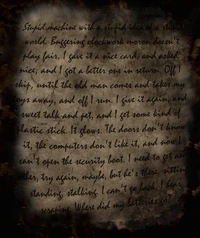 Stupid machine with a stupid idea of a stupid
world. Buggering clockwork moron doesn't
play fair. I gave it a nice card, and asked
nice, and I got a better one in return. Off I
skip, until the old man comes and takes my
toys away, and off I run. I give it again, and
sweet talk and get, and I get some kind of
plastic stick. It glows. The doors don't know
it, the computers don't like it, and now I
can't open the security boot. I need to get an
other, try again, maybe, but he's there, sitting
standing, stalking. I can't go back. I hear
scraping. Where did my batteries go?